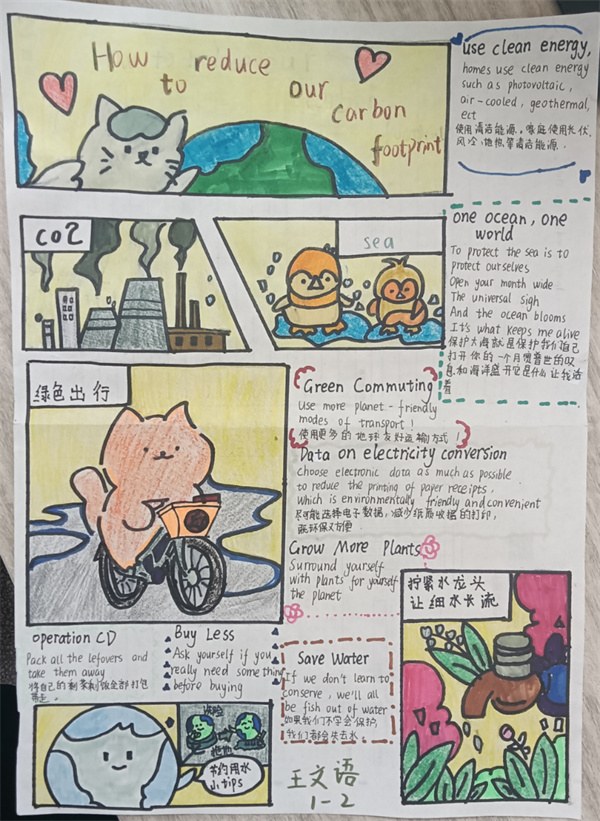 How to reduce our carbon footprint
use clean energy,
homes use clean energy
such as photovoltaic,
air-cooled, geothermal,
ect
使用清洁能源,家庭使用光伏,
风冷,地热等清洁能源.
CO2
sea
one ocean, one
world
To protect the sea is to
protect ourselves
Open your month wide
The universal sigh
And the ocean blooms
It's what keeps me alive
保护大海就是保护我们自己
打开你的一个月
息和海洋盛开它是什么让我活
着
绿色出行
Green Commuting
Use more planet-friendly
modes of transport!
使用更多的地球友好运输方式!
Data on electricity conversion
Choose electronic data as much as possible
to reduce the printing of paper receipts,
which is environmentally friendly and convenient
尽可能选择电子数据,减少纸质收据的打印,
既环保又方便.
Grow More Plants
Surround yourself
with plants for yourself
the planet
拧紧水龙头
让细水长流
operation CD
Pack all the lefovers and
take them away
将自己的剩菜剩饭全部打包
带走.
Buy Less
Ask yourself if you
really need some thing
before buying
Save Water
If we don't learn to
conserve, we'll all
be fish out of water
如果我们不学会保护,
我们都会失去水.
节约用水
小tips
王文语
1-2